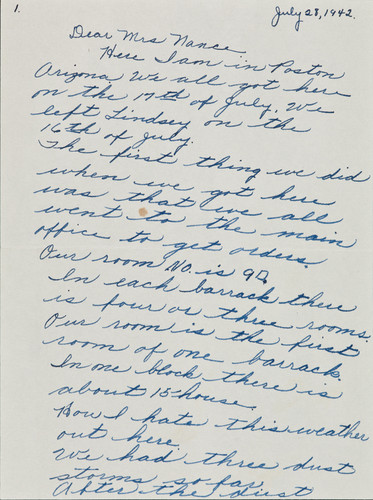 1.
July 28, 1942.
Dear Mrs Nance,
Here I am in Poston
Arizona. We all got here
on the 17th of July. We
left Lindsey on the
16th of July.
The first thing we did
when we got here
was that we all
went to the main
office to get orders.
Our room No. is 9D.
In each barrack there
is four or three rooms.
Our room is the first
room of one barrack.
In one block there is
about 15 house.
How I hate this weather
out here.
We had three dust
storms so far.
After the dust